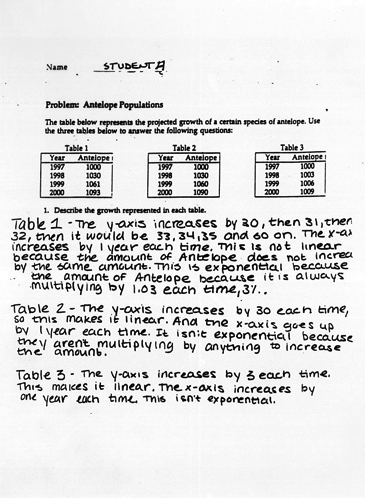 Name STUDENT A
Problem: Antelope Populations
The table below represents the projected growth of a certain species of antelope. Use
the three tables below to answer the following questions:
Table 1 Table 2 Table 3
Year Antelope Year Antelope Year Antelope
1997 1000 1997 1000 1997 1000
1998 1030 1998 1030 1998 1003
1999 1061 1999 1060 1999 1006
2000 1093 2000 1090 2000 1009
1. Describe the growth represented in each table.
Table 1 - The y-axis increases by 30, then 31, then
32, then it would be 33, 34, 35 and so on. The x-ax
increases by 1 year each time. This is not linear
because the amount of Antelope does not increa
by the same amount. This is exponential because
the amount of Antelope because it is always
multiplying by 1.03 each time, 3%..
Table 2 - The y-axis increases by 30 each time,
so this makes it linear. And the x-axis goes up
by 1 year each time. It isn't exponential because
they arent multiplying by anything to increase
the amount.
Table 3 - The y-axis increases by 3 each time.
This makes it linear. The x-axis increases by
one year each time. This isn't exponential.